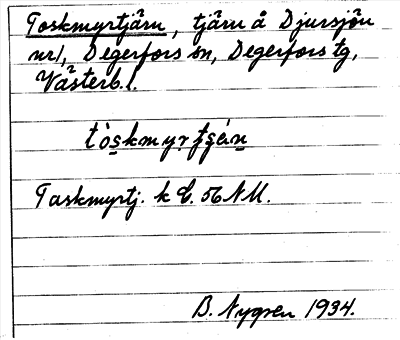 Toskmyrtjärn, tjärn å Djursjön
nr 1, Degerfors sn, Degerfors tg,
Västerb. l.
Taskmyrtj. k C. 56 NU.
B. Nygren 1934.